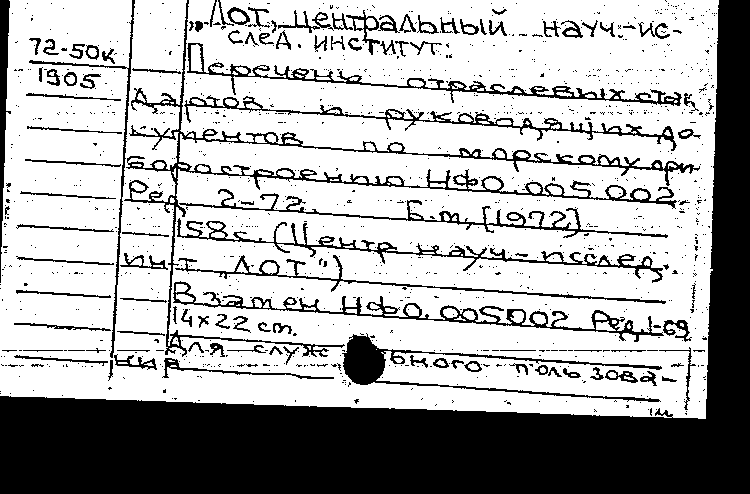 „ЛОТ, центральный науч.-ис-
след. институт:
72-50к
1905
Перечень отраслевых стан
дартов и руководящих до
кументов по морскому при
боростроению НФ0.005.002.
Ред. 2-72. Б.м, [1972].
158с. (Центр науч-исслед.
ин-т „ЛОТ")
Взамен НФ0.005002 Ред,1-69
14х22 cm.
Для служ ьного пользова-
ния